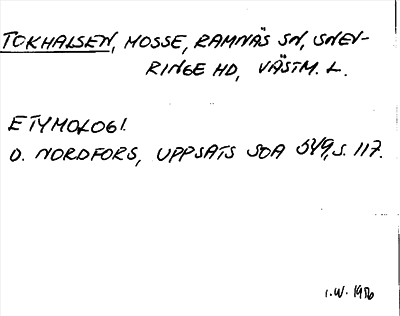 TOKHALSEN, MOSSE, RAMNÄS SN, SNEV-
RINGE HD, VÄSTM. L.
ETYMOLOGI.
O. NORDFORS, UPPSATS SOA 549, S. 117.
I.W. 1986